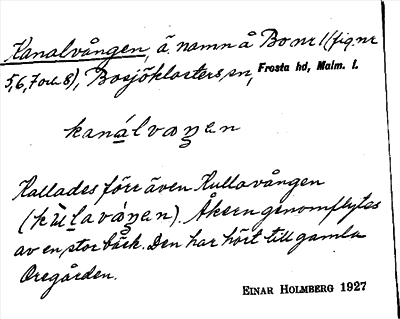 Kanalvången, ä. namn å Bo nr 1 (fig nr
5, 6, 7 och 8), Bosjöklosters sn, Frosta hd, Malm. l.
kanálvaŋen
Kallades förr även Kullavången
(kùlaváŋen). Åkern genomflytes
av en stor bäck. Den har hört till gamla
Oregården.
EINAR HOLMBERG 1927